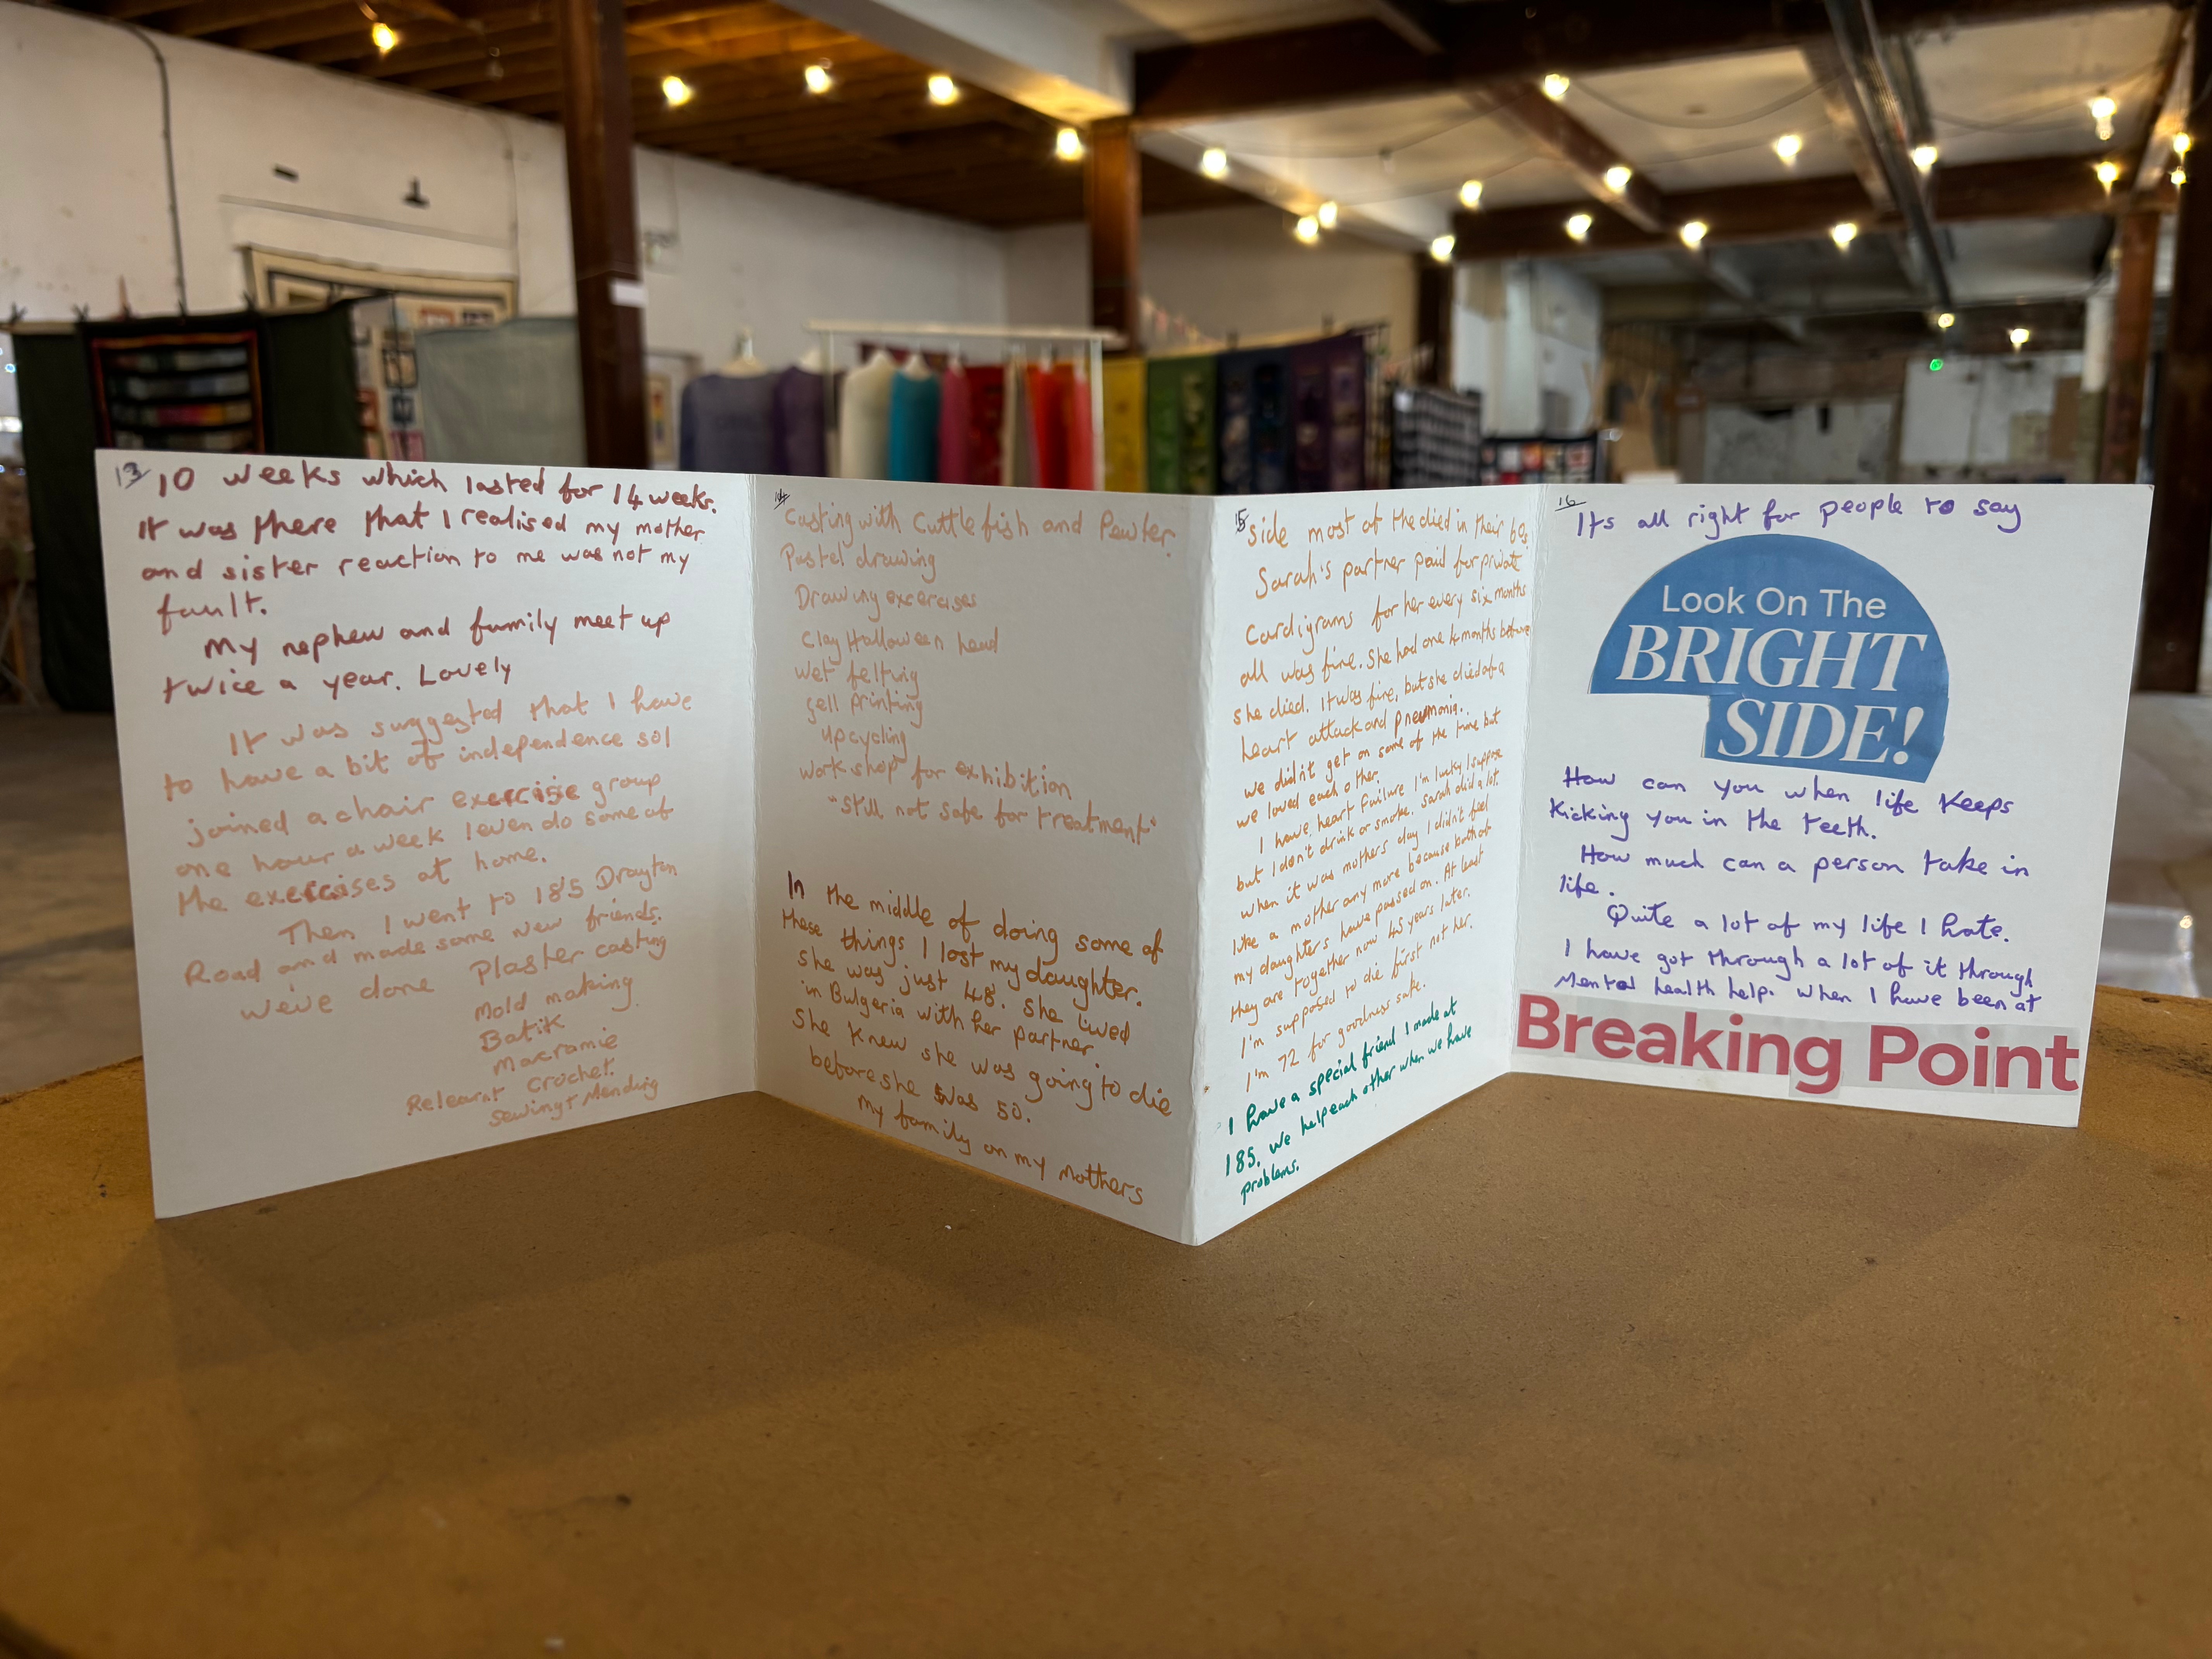 13
10 weeks which lasted for 14 weeks.
It was there that I realised my mother
and sister reaction to me was not my
fault.
My nephew and family meet up
twice a year. Lovely
It was suggested that I have
to have a bit of independence so I
joined a chair exercise group
one hour a week I even do some of
the exercises at home.
Then I went to 185 Drayton
Road and made some new friends.
weve done Plaster casting
Mold making
Batik
Macramie
Relearnt Crochet.
Sewing + Mending
14
Casting with Cuttlefish and Pewter.
Pastel drawing
Drawing excercises
Clay Halloween head
Wet felting
gell printing
upcycling
workshop for exhibition
"Still not safe for treatment"
In the middle of doing some of
these things I lost my daughter.
She was just 48. She lived
in Bulgeria with her partner.
She knew she was going to die
before she was 50.
My family on my Mothers
15
side most of the died in their 60s.
Sarah's partner paid for private
Cardigrams for her every six months
all was fine. She had one 4 months before
she died. It was fine, but she died of a
heart attack and pneumonia.
we didn't get on some of the time but
we loved each other.
I have heart failure I'm lucky I suppose
but I don't drink or smoke. Sarah did a lot.
when it was mothers day I didn't feel
like a mother any more because both of
my daughters have passed on. At least
they are together now 45 years later.
I'm supposed to die first not her.
I'm 72 for goodness sake.
I have a special friend I made at
185. we help each other when we have
problems.
16
Its all right for people to say
Look On The
BRIGHT
SIDE!
How can you when life keeps
kicking you in the teeth.
How much can a person take in
life.
Quite a lot of my life I hate.
I have got through a lot of it through
Mental health help. When I have been at
Breaking Point